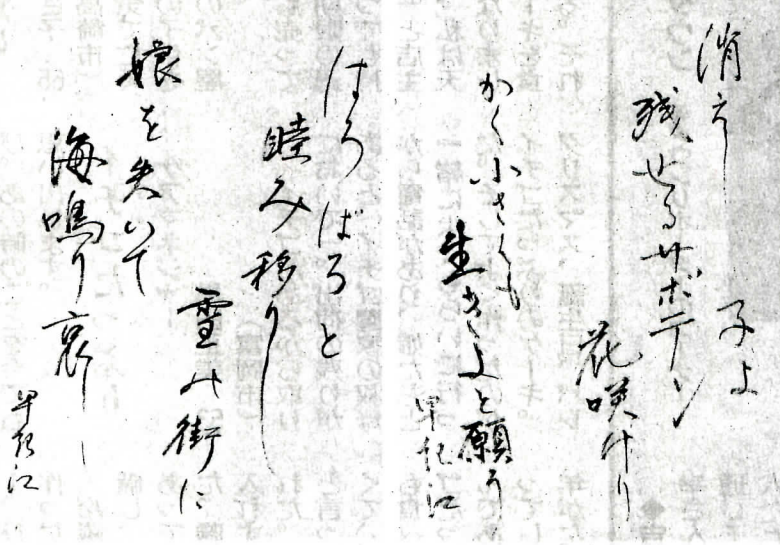 消えし子よ
残せるサボテン
花咲けり
かく小さくも
生きよと願う
早紀江
はろばろと
睦み移りし
雪の街に
娘を失いて
海鳴り哀し
早紀江